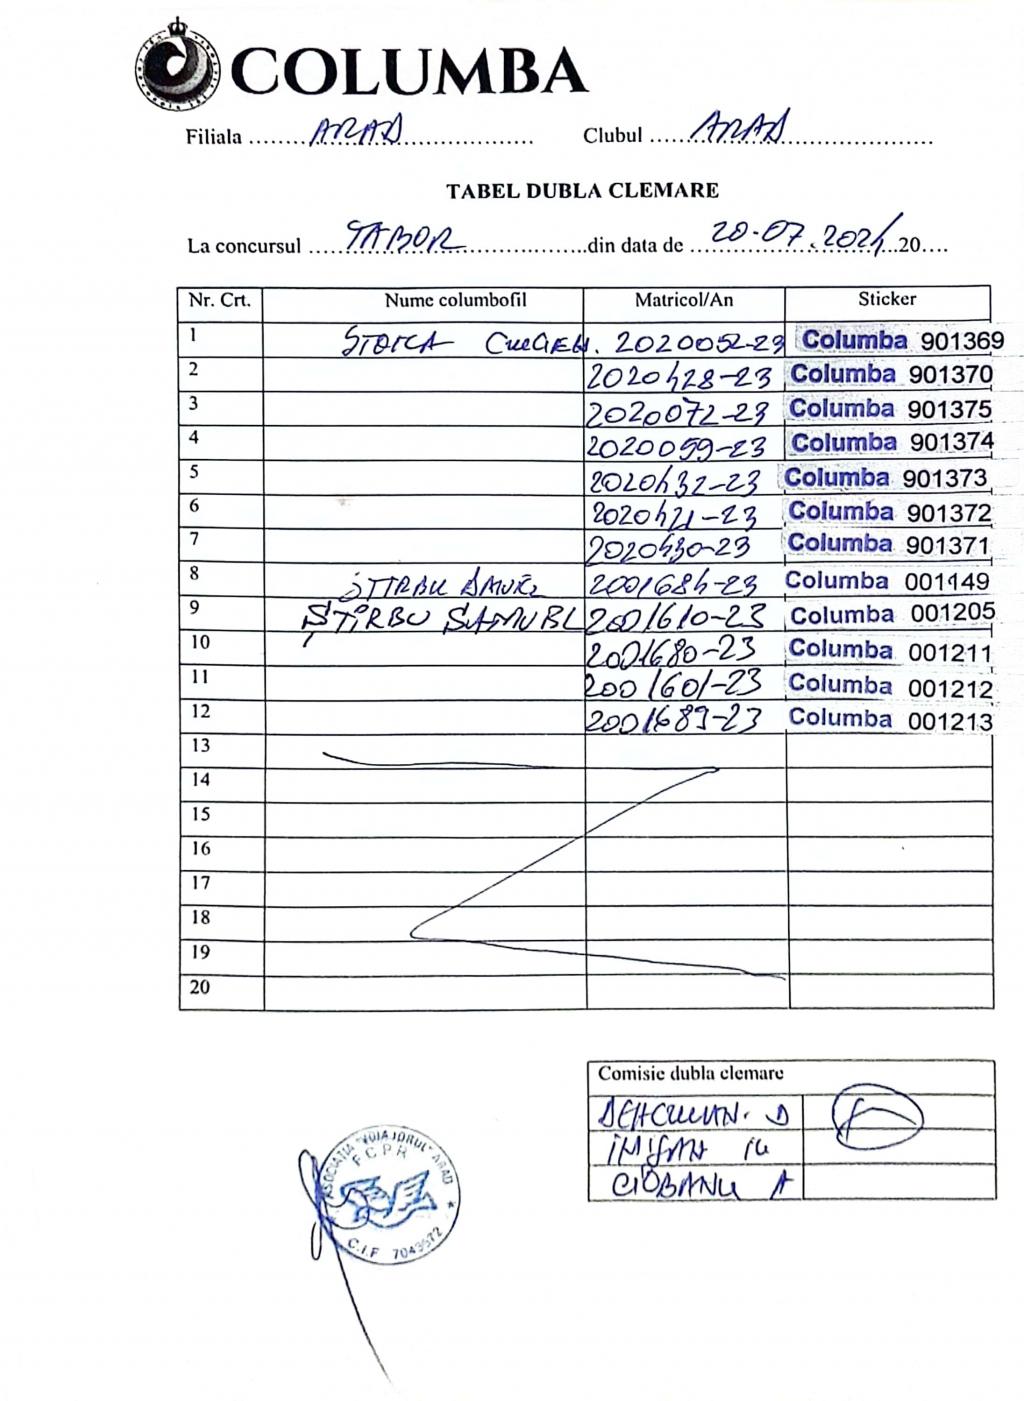 COLUMBA
Filiala ....... ARAD ................... Clubul ...... ARAD ......................
TABEL DUBLA CLEMARE
La concursul ..... TABOR ..................din data de ... 20-07.2024 ..20....
Nr. Crt. Nume columbofil Matricol/An Sticker
1 STOICA 2020052-23 Columba 901369
2 2020428-23 Columba 901370
3 2020072-23 Columba 901375
4 2020059-23 Columba 901374
5 2020432-23 Columba 901373
6 2020421-23 Columba 901372
7 2020430-23 Columba 901371
8 STIRBU DANIEL 2001684-23 Columba 001149
9 ȘTIRBU SAMUEL 2001610-23 Columba 001205
10 2001680-23 Columba 001211
11 2001601-23 Columba 001212
12 2001689-23 Columba 001213
13
14
15
16
17
18
19
20
Comisie dubla clemare
CIOBANU A
ASOCIATIA "VOIAJORUL" ARAD
FCPR
C.I.F 7043572